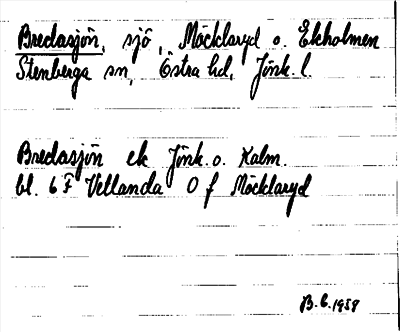 Bredasjön, sjö, Möcklaryd o. Ekholmen
Stenberga sn, Östra hd, Jönk. l.
Bredasjön ek Jönk. o. Kalm.
bl. 6 F Vetlanda O f Möcklaryd
B. 6. 1959